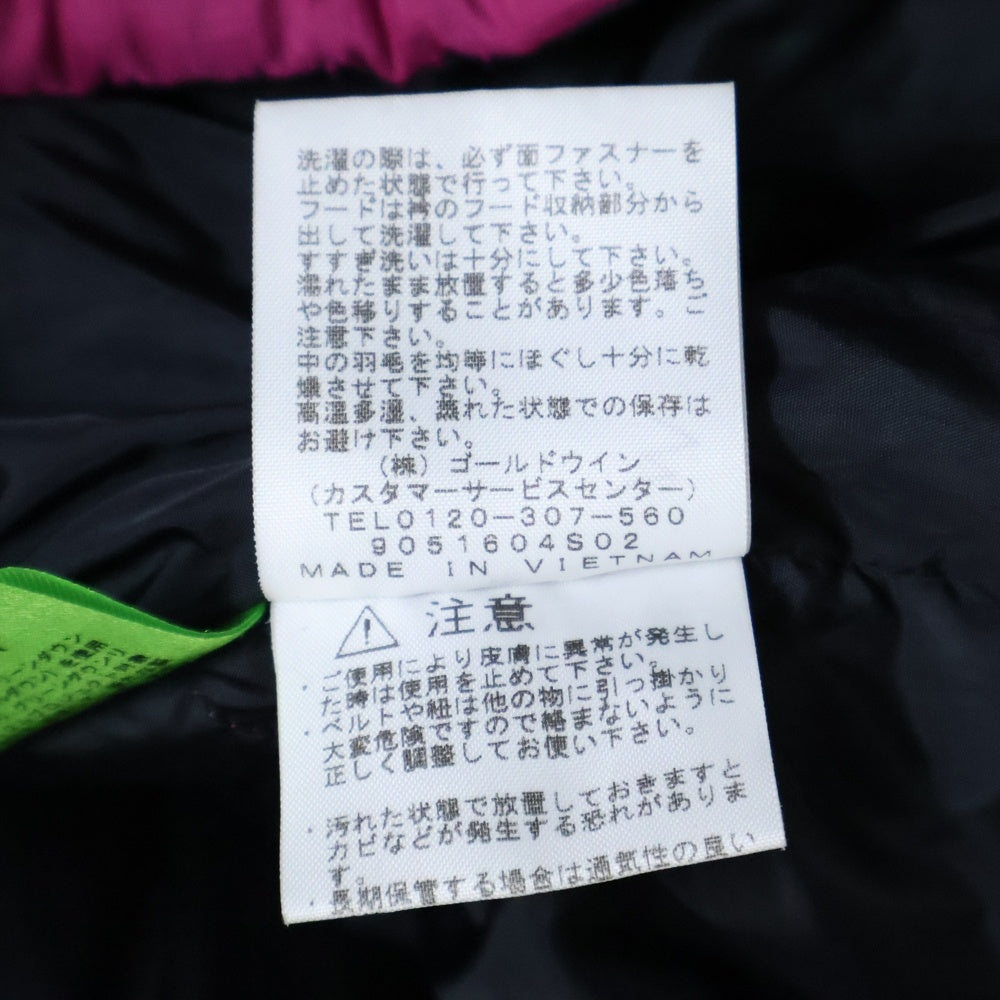 洗濯の際は、必ず面ファスナーを
止めた状態で行って下さい。
フードは衿のフード収納部分から
出して洗濯して下さい。
すすぎ洗いは十分にして下さい。
濡れたまま放置すると多少色落ち
や色移りすることがあります。ご
注意下さい。
中の羽毛を均等にほぐし十分に乾
燥させて下さい。
高温多湿、蒸れた状態での保存は
お避け下さい。
(株)ゴールドウイン
(カスタマーサービスセンター)
TEL0120-307-560
9051604S02
MADE IN VIETNAM
注意
・ご使用により皮膚に異常が発生し
た時は使用を止めて下さい。
・ベルトや紐は他の物に引っ掛かり
大変危険ですので絡まないように
正しく調整してお使い下さい。
・汚れた状態で放置しておきますと
カビなどが発生する恐れがありま
す。
・長期保管する場合は通気性の良い